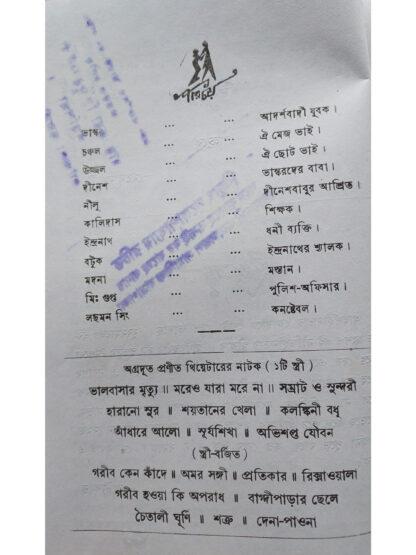 পরিচয়
ভাস্কর ... ... আদর্শবাদী যুবক।
চঞ্চল ... ... ঐ মেজ ভাই।
উজ্জ্বল ... ... ঐ ছোট ভাই।
দীনেশ ... ... ভাস্করদের বাবা।
নীলু ... ... দীনেশবাবুর আশ্রিত।
কালিদাস ... ... শিক্ষক।
ইন্দ্রনাথ ... ... ধনী ব্যক্তি।
বটুক ... ... ইন্দ্রনাথের শ্যালক।
মদনা ... ... মস্তান।
মিঃ গুপ্ত ... ... পুলিশ-অফিসার।
লছমন সিং ... ... কনষ্টেবল।
অগ্রদূত প্রণীত থিয়েটারের নাটক (১টি স্ত্রী)
ভালবাসার মৃত্যু॥ মরেও যারা মরে না॥ সম্রাট ও সুন্দরী
হারানো সুর॥ শয়তানের খেলা॥ কলঙ্কিনী বধূ
আঁধারে আলো॥ সূর্যশিখা॥ অভিশপ্ত যৌবন
(স্ত্রী-বর্জিত)
গরীব কেন কাঁদে॥ অমর সঙ্গী॥ প্রতিকার॥ রিক্সাওয়ালা
গরীব হওয়া কি অপরাধ॥ বাগ্দীপাড়ার ছেলে
চৈতালী ঘূর্ণি॥ শত্রু॥ দেনা-পাওনা